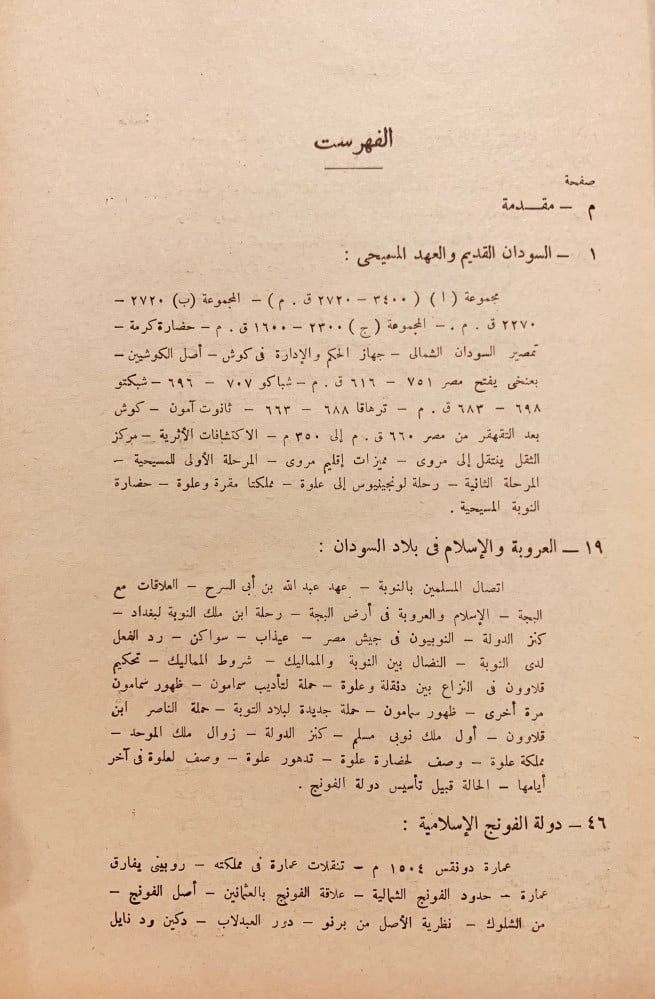 الفهرست
صفحة
م – مقدمة
١ – السودان القديم والعهد المسيحى :
مجموعة ( ا ) ( ٣٤٠٠ – ٢٧٢٠ ق . م ) – المجموعة (ب) ٢٧٢٠ –
٢٢٧٠ ق . م . – المجموعة ( ج ) ٢٣٠٠ – ١٦٠٠ ق . م – حضارة كرمة –
تمصير السودان الشمالى – جهاز الحكم والإدارة فى كوش – أصل الكوشيين –
بعنخى يفتح مصر ٧٥١ – ٦١٦ ق . م – شباكو ٧٠٧ – ٦٩٦ – شبكتو
٦٩٨ – ٦٨٣ ق . م – ترهاقا ٦٨٨ – ٦٦٣ – ثانوت آمون – كوش
بعد التقهقر من مصر ٦٦٠ ق . م إلى ٣٥٠ م – الاكتشافات الأثرية – مركز
الثقل ينتقل إلى مروى – مميزات إقليم مروى – المرحلة الأولى للمسيحية –
المرحلة الثانية – رحلة لونجينيوس إلى علوة – مملكتا مقرة وعلوة – حضارة
النوبة المسيحية .
١٩ – العروبة والإسلام فى بلاد السودان :
اتصال المسلمين بالنوبة – عهد عبد الله بن أبى السرح – العلاقات مع
البجة – الإسلام والعروبة فى أرض البجة – رحلة ابن ملك النوبة لبغداد –
كنز الدولة – النوبيون فى جيش مصر – عيذاب – سواكن – رد الفعل
لدى النوبة – النضال بين النوبة والمماليك – شروط المماليك – تحكيم
قلاوون فى النزاع بين دنقلة وعلوة – حملة لتأديب سمامون – ظهور سمامون
مرة أخرى – ظهور سمامون – حملة جديدة لبلاد النوبة – حملة الناصر ابن
قلاوون – أول ملك نوبى مسلم – كنز الدولة – زوال ملك الموحد –
مملكة علوة – وصف لحضارة علوة – تدهور علوة – وصف لعلوة فى آخر
أيامها – الحالة قبيل تأسيس دولة الفونج .
٤٦ – دولة الفونج الإسلامية :
عمارة دونقس ١٥٠٤ م – تنقلات عمارة فى مملكته – روبينى يفارق
عمارة – حدود الفونج الشمالية – علاقة الفونج بالعثمانين – أصل الفونج –
من الشلوك – نظرية الأصل من برنو – دور العبدلاب – دكين ود نايل